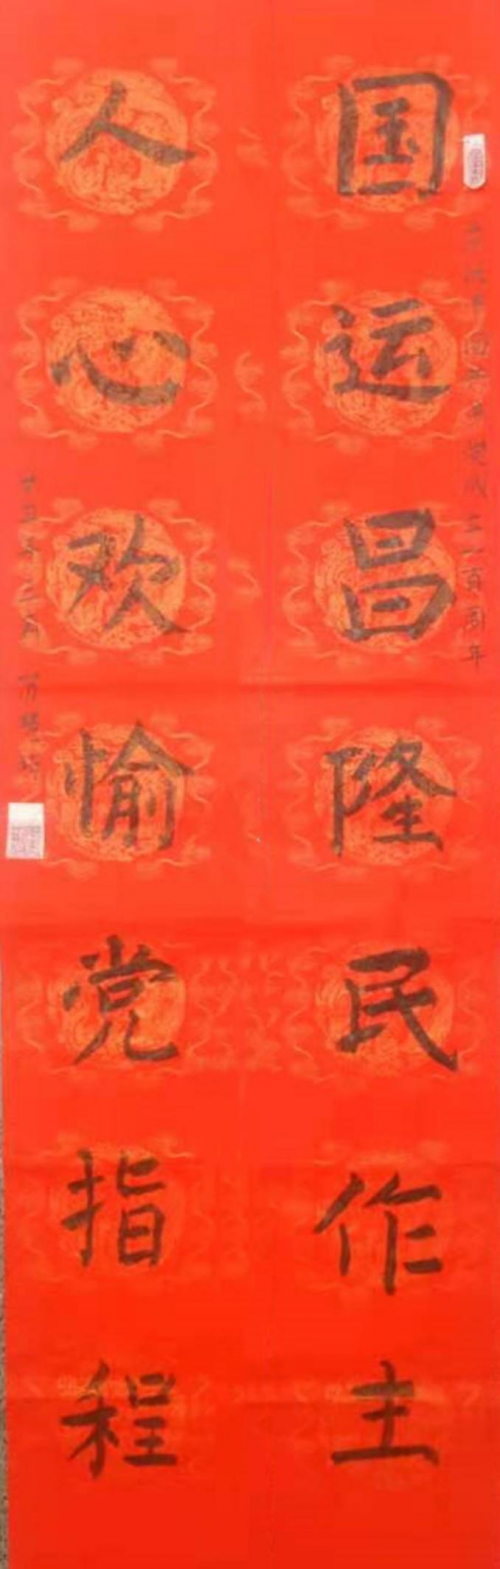 国运昌隆民作主
人心欢愉党指程
一百周年